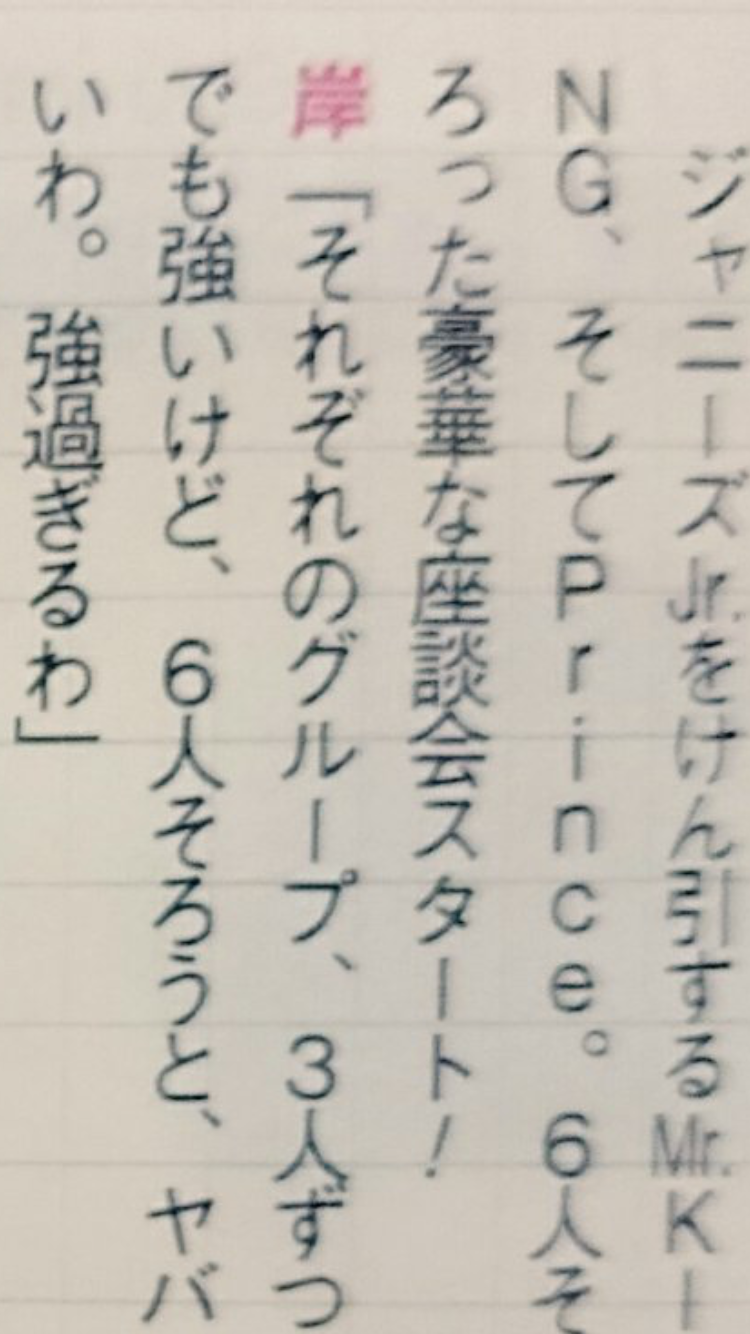 ジャニーズJr.をけん引するMr.KI
NG、そしてPrince。6人そ
ろった豪華な座談会スタート！
岸「それぞれのグループ、3人ずつ
でも強いけど、6人そろうと、ヤバ
いわ。強過ぎるわ」